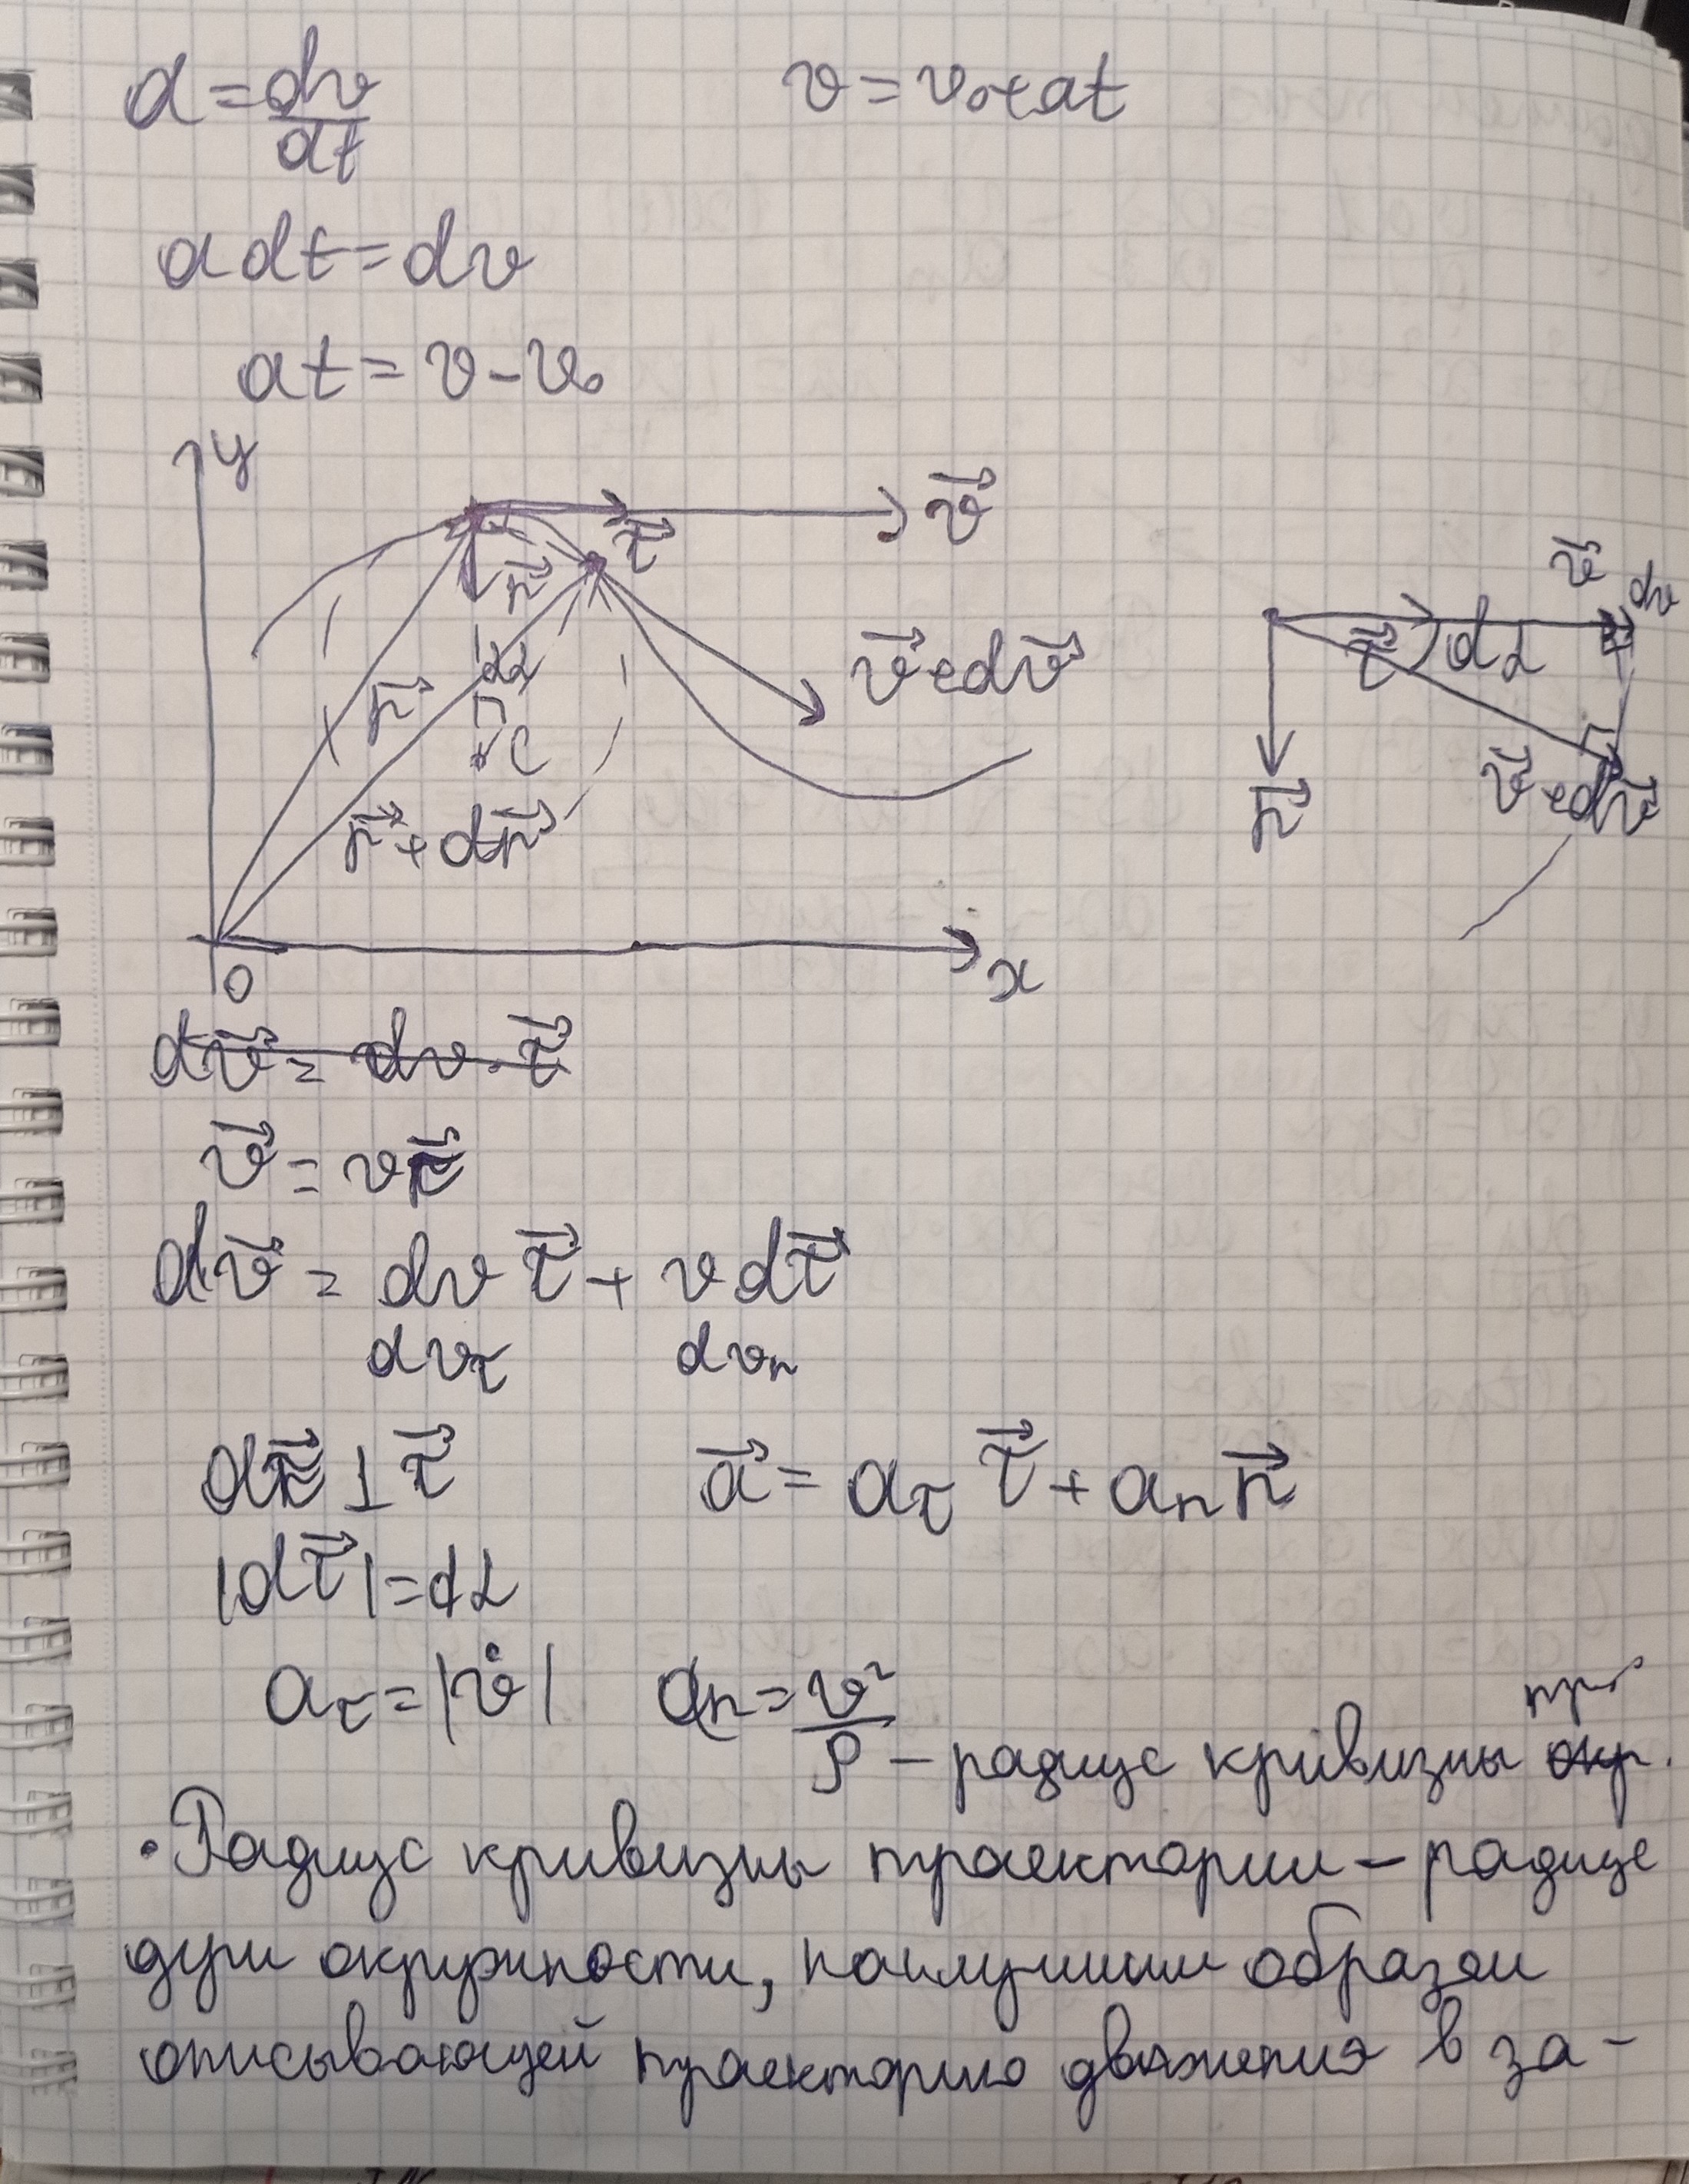 a = dv/dt    v = v₀ + at
a dt = dv
at = v - v₀
y
v⃗
τ⃗
n⃗
dα
r⃗
C
v⃗ + dv⃗
r⃗ + dr⃗
0
x
v⃗ dv
τ⃗ dα
n⃗
v⃗ + dv⃗
dv⃗ = dv · τ⃗
v⃗ = vτ⃗
dv⃗ = dv τ⃗ + v dτ⃗
dvτ    dvn
dτ⃗ ⊥ τ⃗    a⃗ = aτ τ⃗ + an n⃗
|dτ⃗| = dα
aτ = |v̇|    an = v²/ρ - радиус кривизны окр.
• Радиус кривизны траектории - радиус
дуги окружности, наилучшим образом
описывающей траекторию движения в за-